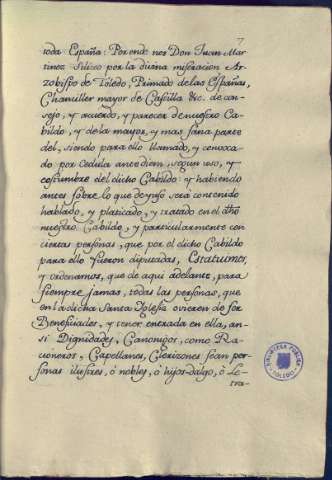 7
toda España: Por ende nos Don Juan Mar-
tinez Siliceo por la divina miseracion Ar-
zobispo de Toledo, Primado de las Españas,
Chanciller mayor de Castilla &c. de con-
sejo, y acuerdo, y parecer de nuestro Ca-
bildo, y de la mayor, y mas sana parte
del, siendo para ello llamado, y convoca-
do por Cedula ante diem, segun uso, y
costumbre del dicho Cabildo: y habiendo
antes sobre lo que de yuso será contenido
hablado, y platicado, y tratado en el dho
nuestro Cabildo, y particularmente con
ciertas personas, que por el dicho Cabildo
para ello fueron diputadas, Estatuimos,
y ordenamos, que de aqui adelante, para
siempre jamas, todas las personas, que
en la dicha Santa Iglesia ovieren de ser
Beneficiados, y tener entrada en ella, an-
si Dignidades, Canonigos, como Ra-
cioneros, Capellanes, Clerizones sean per-
sonas ilustres, ó nobles, ó hijos-dalgo, ó Le-
tra-
BIBLIOTECA PUBLICA
TOLEDO